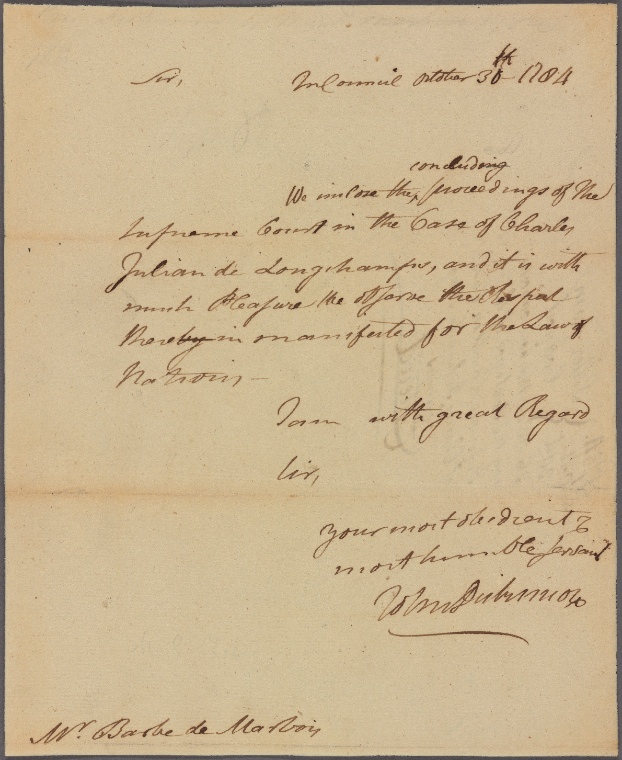 Sir,
In Council October 30th 1784
concluding
We inclose the proceedings of the
Supreme Court in the Case of Charles
Julian de Longchamps, and it is with
much Pleasure We observe the Respect
thereby in manifested for the Law of
Nations—
I am with great Regard
Sir,
your most obedient &
most humble servant
John Dickinson
Mr. Barbe de Marbois